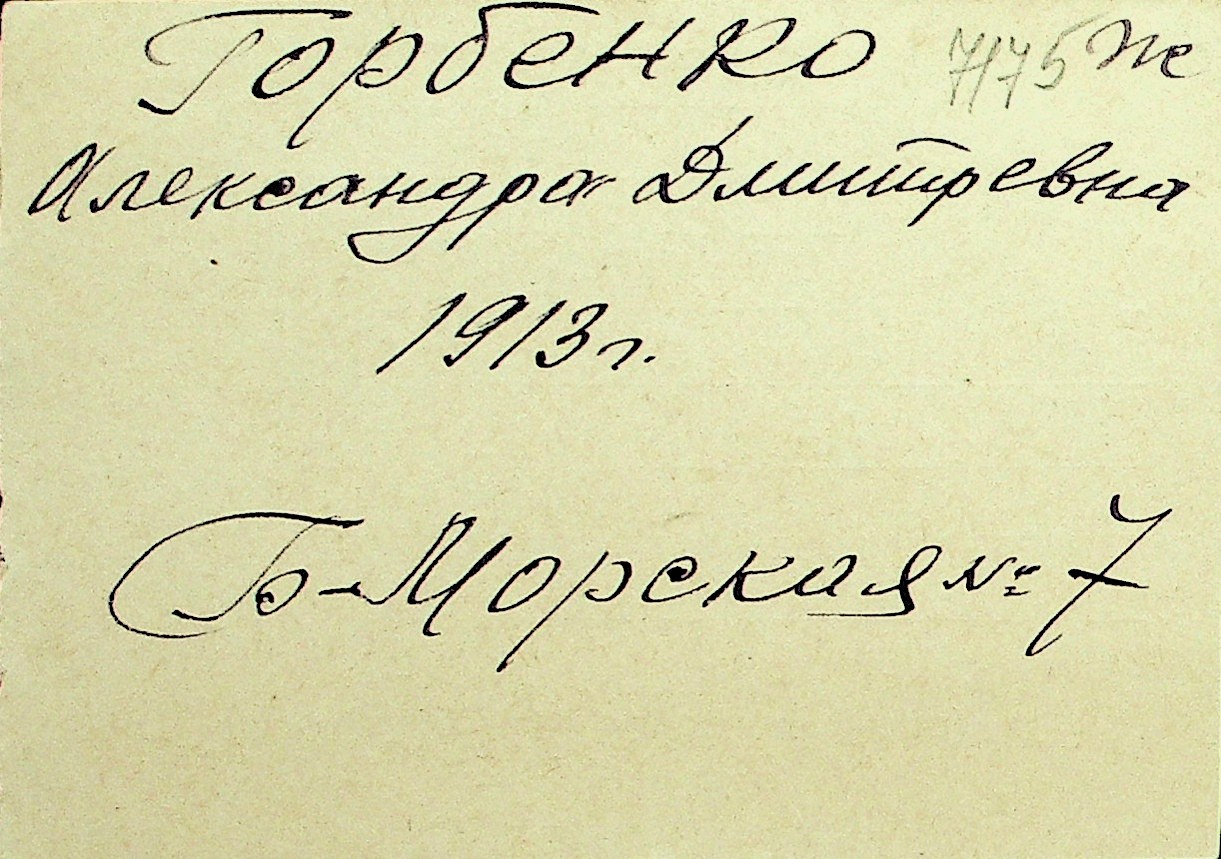 Горбенко 7175 Ж
Александра Дмитревна
1913 г.
Б-Морская № 7